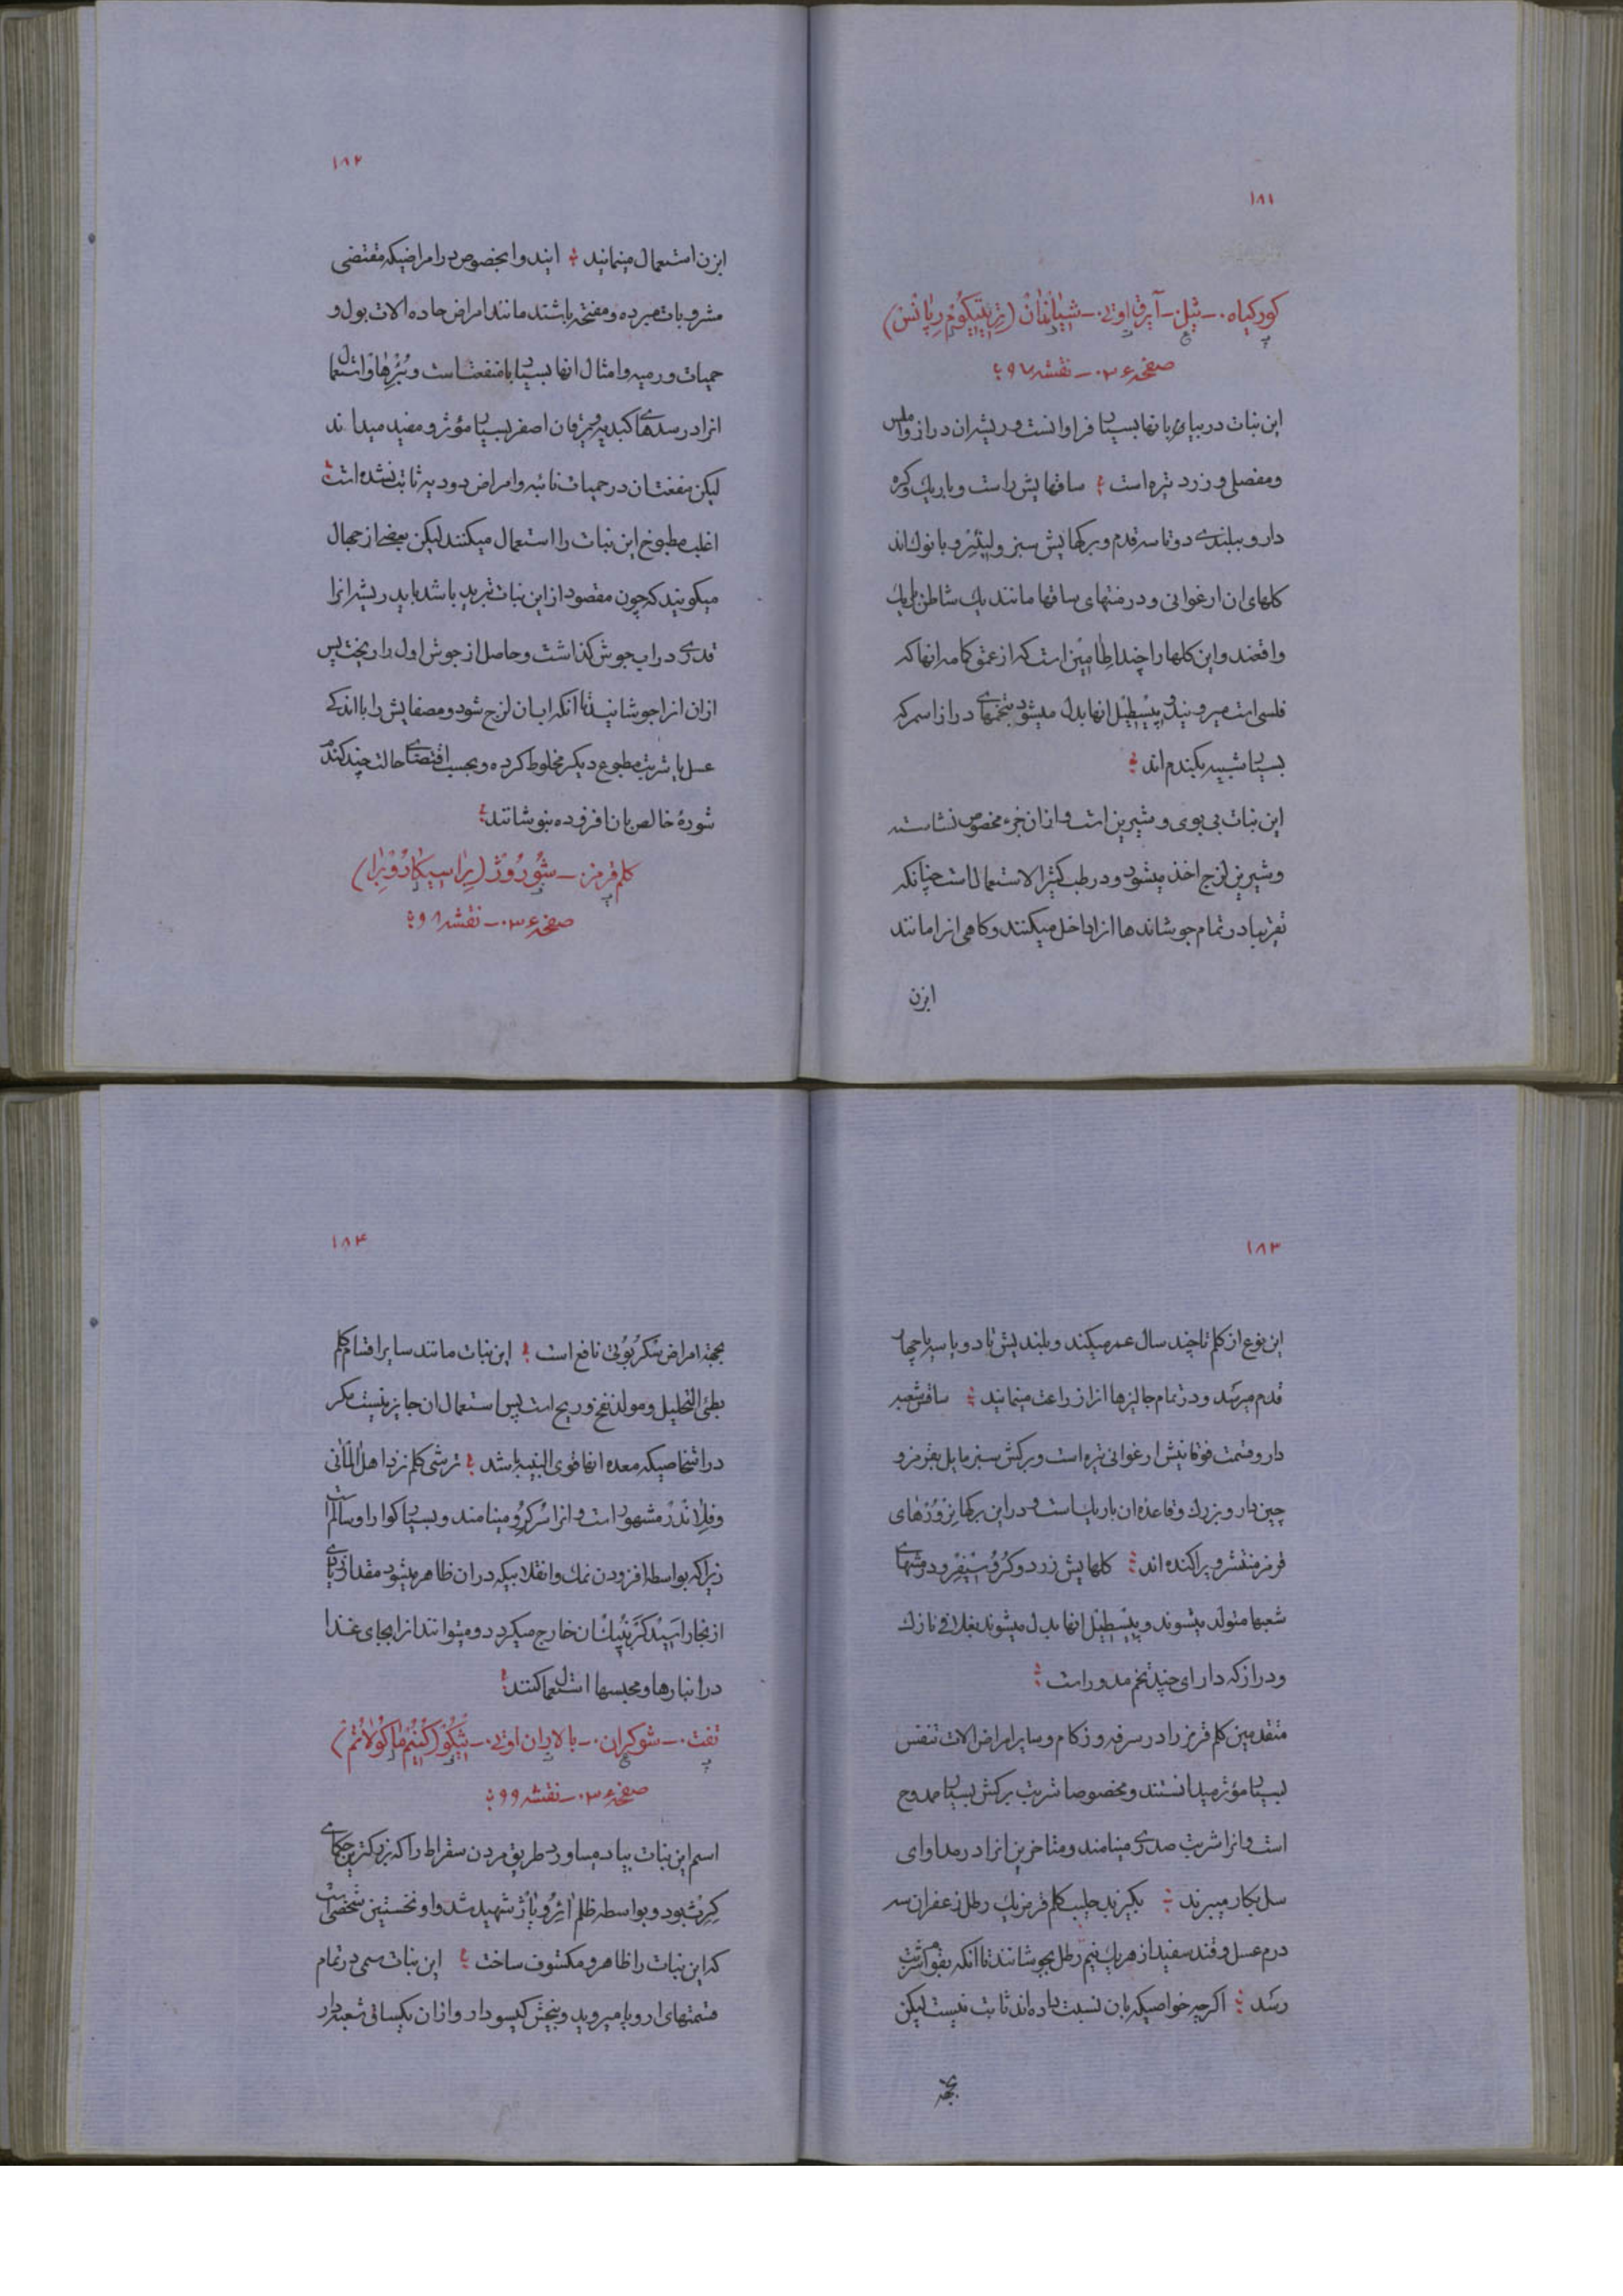 ۱۸۱
کورکیاه ۰ـ ثیل ۰ـ آیرق اوتی ۰ـ شیاندان (تریتیکوم رپانس)
صفحه ۳۰۶ ـ نقشه ۹۷
این نبات در بیابانها بسیار فراوانست و ریشه‌ان دراز و املس
ومفصلی و زرد تیره است ساقهایش راست و باریك و کره
دار و ببلندی دو تا سه قدم و برکهایش سبز و لینئر و با نوك‌اند
کلهای ان ارغوانی و در منتهای ساقها مانند یك شاطن باریك
واقعند و این کلها را چند اطامین است که از عمق کامه انها که
فلسی است میرویند و پیستیل انها بدل میشود بتخمهای دراز اسمر که
بسیار شبیه بکندم اند
این نبات بی بوی و شیرین است و از ان جزء مخصوص نشاسته
و شیرین لزج اخذ میشود و در طب کثیر الاستعمال است چنانکه
تقریبا در تمام جوشانده‌ها انرا داخل میکنند و کاهی انرا مانند
ابزن
۱۸۲
ابزن استعمال مینمایند ایند وا بخصوص در امراضیکه مقتضی
مشروبات مبرده و مفتحه باشند مانند امراض حاده الات بول و
حمیات ورمیه و امثال انها بسیار با منفعت است و استعمال
انرا در سدهای کبدیه و یرقان اصفر بسیار مؤثر و مفید میدانند
لیکن منفعتان در حمیات نائبه و امراض دودیه ثابت نشده است
اغلب مطبوخ این نبات را استعمال میکنند لیکن بعضی از
میکویند که چون مقصود از این نبات تبرید باشد باید ریشه انرا
قدری در اب جوش کذاشت و حاصل از جوش اول را ریخت پس
ازان انرا جوشانید تا انکه ابان لزج شود و مصفایش را با اندکی
عسل یا شربت مطبوع دیکر مخلوط کرده و بحسب اقتضای حالت چند کندم
شوره خالص بان افزوده بنوشانند
کلم قرمز ۰ـ شورود (براسیکا روبرا)
صفحه ۳۰۶ ـ نقشه ۹۸
۱۸۳
این نوع از کلم تا چند سال عمر میکند و بلندیش تا دو یا سه یا چهار
قدم میرسد و در تمام جالیزها انرا زراعت مینمایند ساقش شعبه
دار و قسمت فوقانیش ارغوانی تیره است و برکش سبز مایل بقرمز و
چین دار و بزرك و قاعده ان باریك است و در این برکها نرورهای
قرمز منتشر و پراکنده اند کلهایش زرد و کروسیفر و در منتهای
شعبها متولد میشوند و پیستیل انها بدل میشوند بغلافی نازك
و دراز که دارای چند تخم مدور است
متقدمین کلم قرمز را در سرفه و زکام و سایر امراض الات تنفس
بسیار مؤثر میدانستند و مخصوصا شربت برکش بسیار ممدوح
است و انرا شربت صدری مینامند و متاخرین انرا در مداوای
سل بکار میبرند بکیرند حلیب کلم قرمز یك رطل زعفران سه
درم عسل و قند سفید از هریك نیم رطل بجوشانند تا انکه بقوام شربت
رسد اکرچه خواصیکه بان نسبت داده اند ثابت نیست لیکن
بجهة
۱۸۴
بجهة امراض سکربوتی نافع است این نبات مانند سایر اقسام کلم
بطئ التحلیل و مولد نفخ و ریح است پس استعمال ان جایز نیست مکر
در اشخاصیکه معده انها قوی البنیه باشد ترشی کلم نزد اهل المانی
و فلاندر مشهور است و انرا سرکرو مینامند و بسیار کوارا و سالم است
زیرا که بواسطه افزودن نمك و انقلابیکه در ان ظاهر میشود مقدار زیادی
از بخار اسید کربنیك ان خارج میکردد و میتوانند انرا بجای غذا
در انبارها و محبسها استعمال کنند
تفت ۰ـ شوکران ۰ـ بالدران اوتی ۰ـ سیکو (کنیم ماکولاتم)
صفحه ۳۰۶ ـ نقشه ۹۹
اسم این نبات بیاد میاورد طریق مردن سقراط را که بزرکترین حکمای
کرث بود و بواسطه ظلم ائروپاژ شهید شد و او نخستین شخصی است
که این نبات را ظاهر و مکشوف ساخت این نبات سمی در تمام
قسمتهای اروپا میروید و بیخش کیسودار و ازان یکساقی شعبه دار